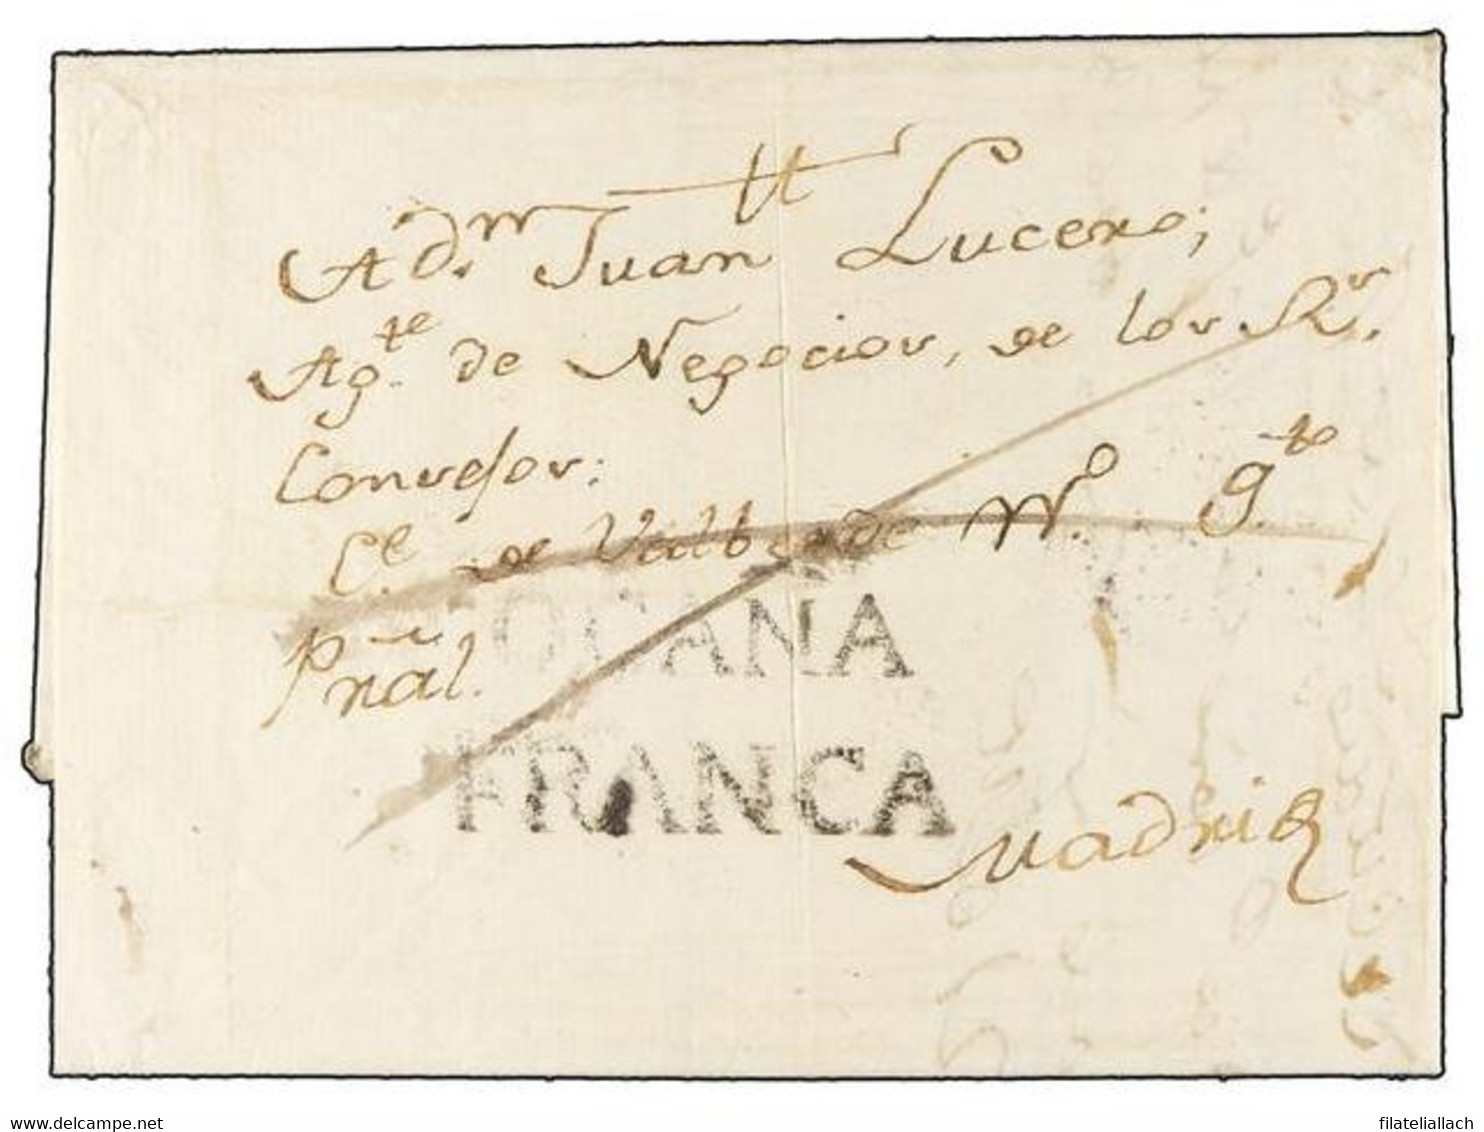 A d.n Juan Lucero;
Ag.te de Negocios, de los R.s
Consejos:
C.e de Valberde N.o 9. to
Pral.
OCAÑA
FRANCA
Madrid
delcampe.net
filateliallach